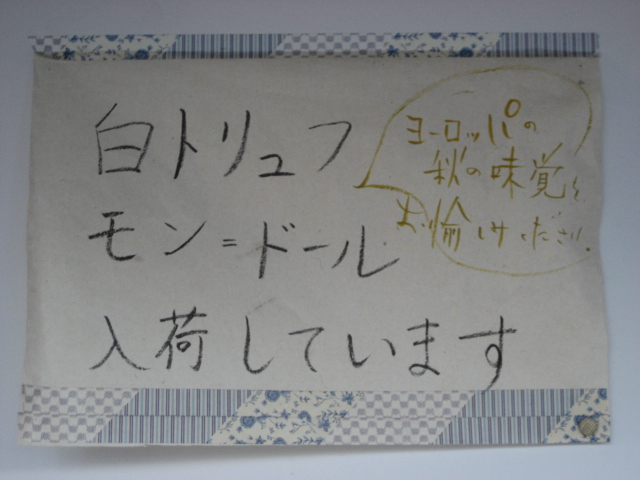 白トリュフ
モン=ドール
入荷しています
ヨーロッパの
秋の味覚を
お愉しみください。